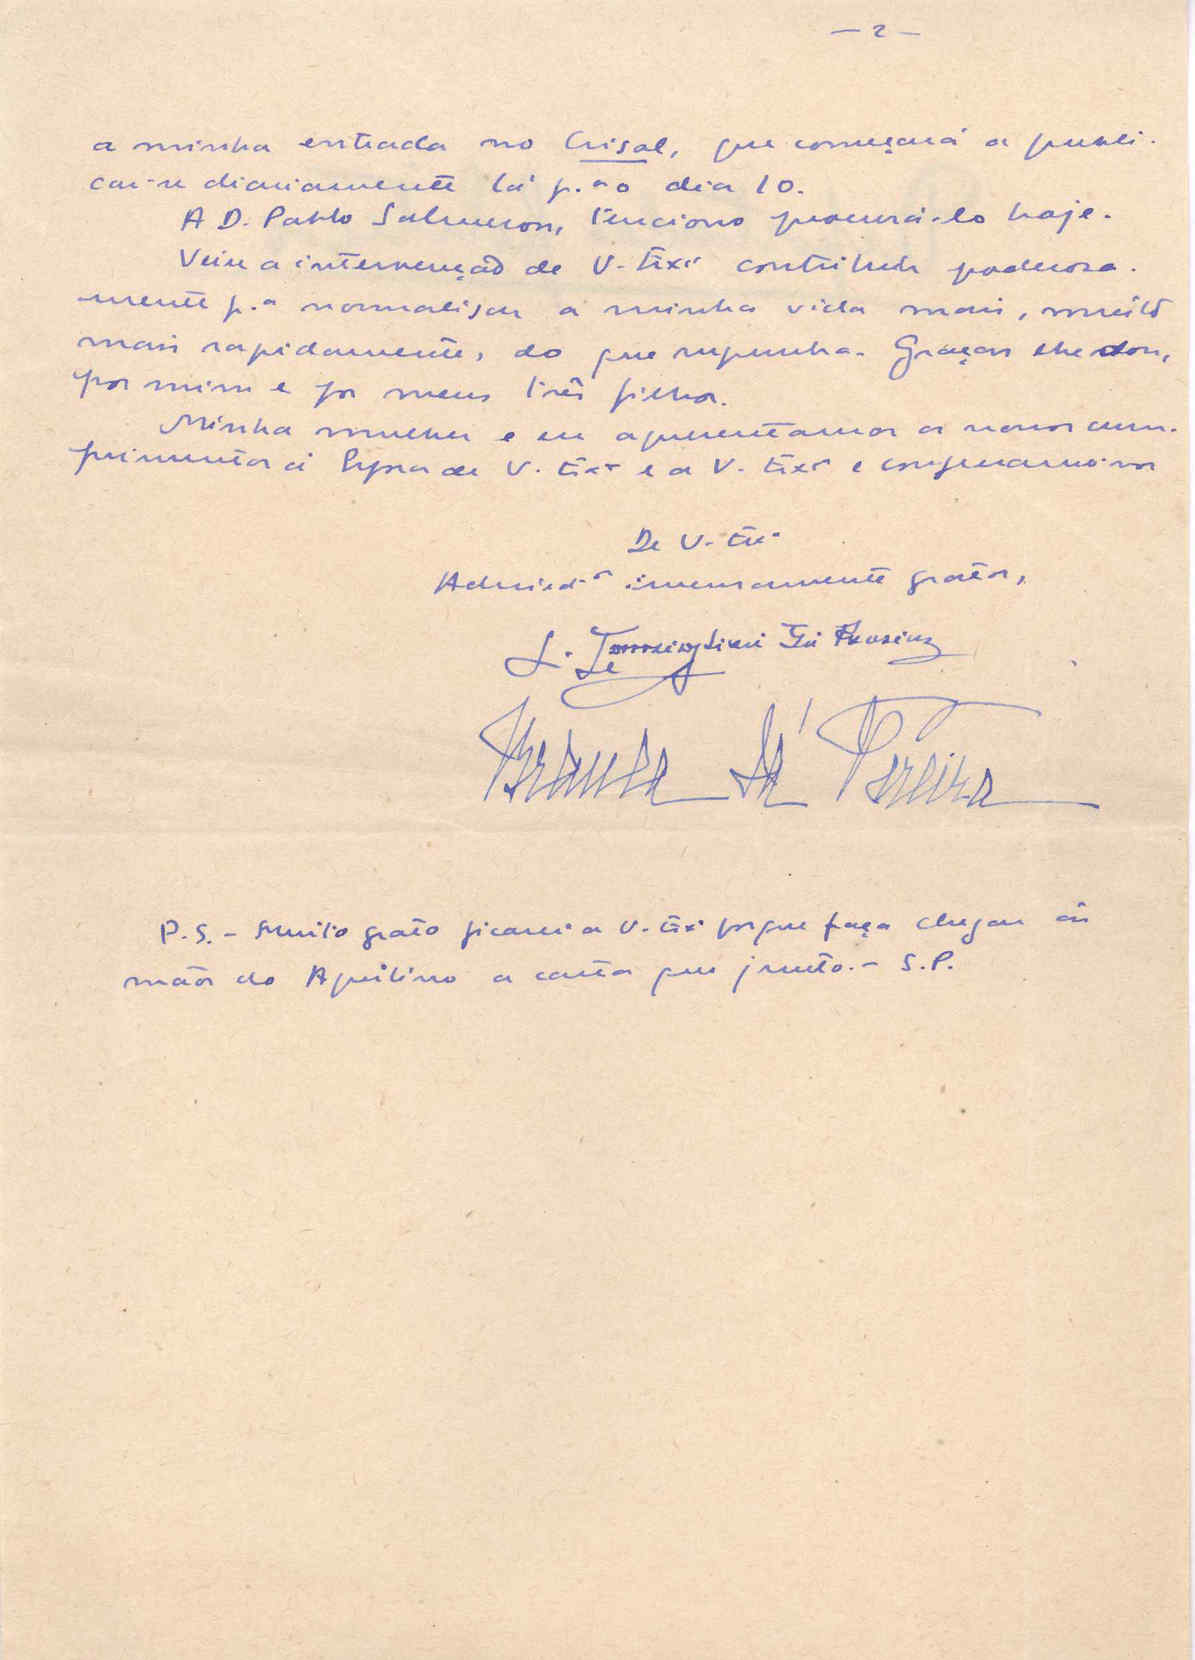 — 2 —
a minha entrada no Crisol, que começará a publi-
car-se diariamente lá p.ª o dia 10.
A D. Pablo Salmeron, tenciono procurá-lo hoje.
Veiu a intervenção de V. Exª contribuir poderosa-
mente p.ª normalisar a minha vida mais, muito
mais rapidamente, do que supunha. Graças lhe dou,
por mim e por meus três filhos.
Minha mulher e eu apresentamos os nossos cum-
primentos á Esposa de V. Exª e a V. Exª e confessamo-nos
De V. Exª
immensamente gratos,
Sá Pereira
Braula Sá Pereira
P.S. - Muito grato ficarei a V. Exª porque faça chegar ás
mãos do Aquilino a carta que junto. - S.P.